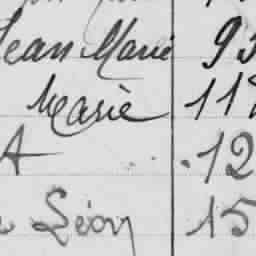 Jean Marie 93
Marie 11
A 12
Léon 15